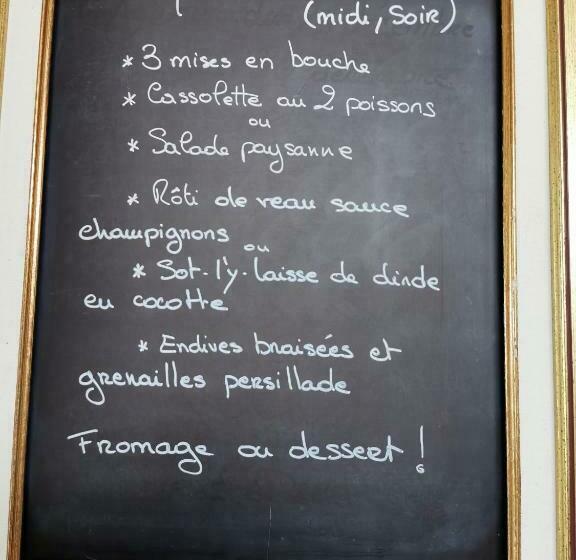 (midi, Soir)
* 3 mises en bouche
* Cassolette au 2 poissons
ou
* Salade paysanne
* Rôti de veau sauce
champignons ou
* Sot-l'y-laisse de dinde
en cocotte
* Endives braisées et
grenailles persillade
Fromage ou dessert !